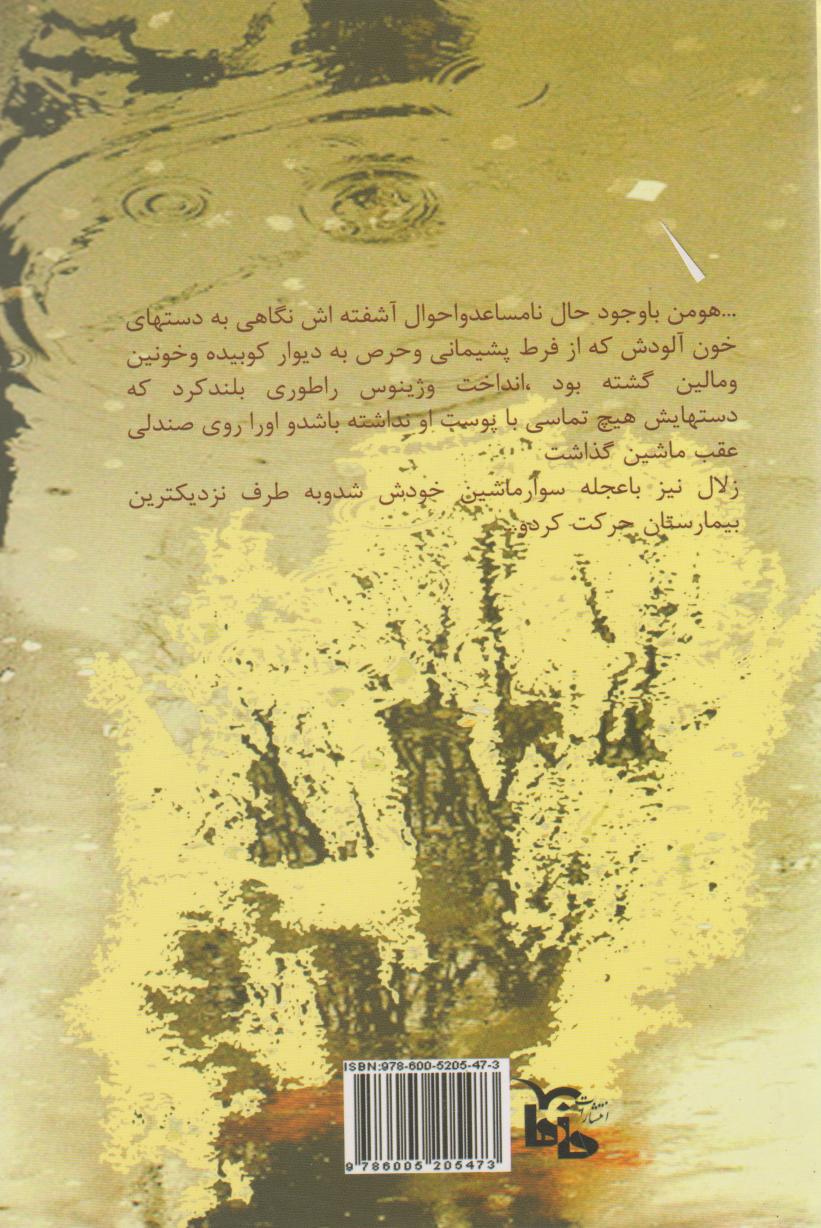 ...هومن باوجود حال نامساعدواحوال آشفته اش نگاهی به دستهای
خون آلودش که از فرط پشیمانی وحرص به دیوار کوبیده وخونین
ومالین گشته بود ،انداخت وژینوس راطوری بلندکرد که
دستهایش هیچ تماسی با پوست او نداشته باشدو اورا روی صندلی
عقب ماشین گذاشت
زلال نیز باعجله سوارماشین خودش شدوبه طرف نزدیکترین
بیمارستان حرکت کردو...
ISBN:978-600-5205-47-3
9 786005 205473
انتشارات